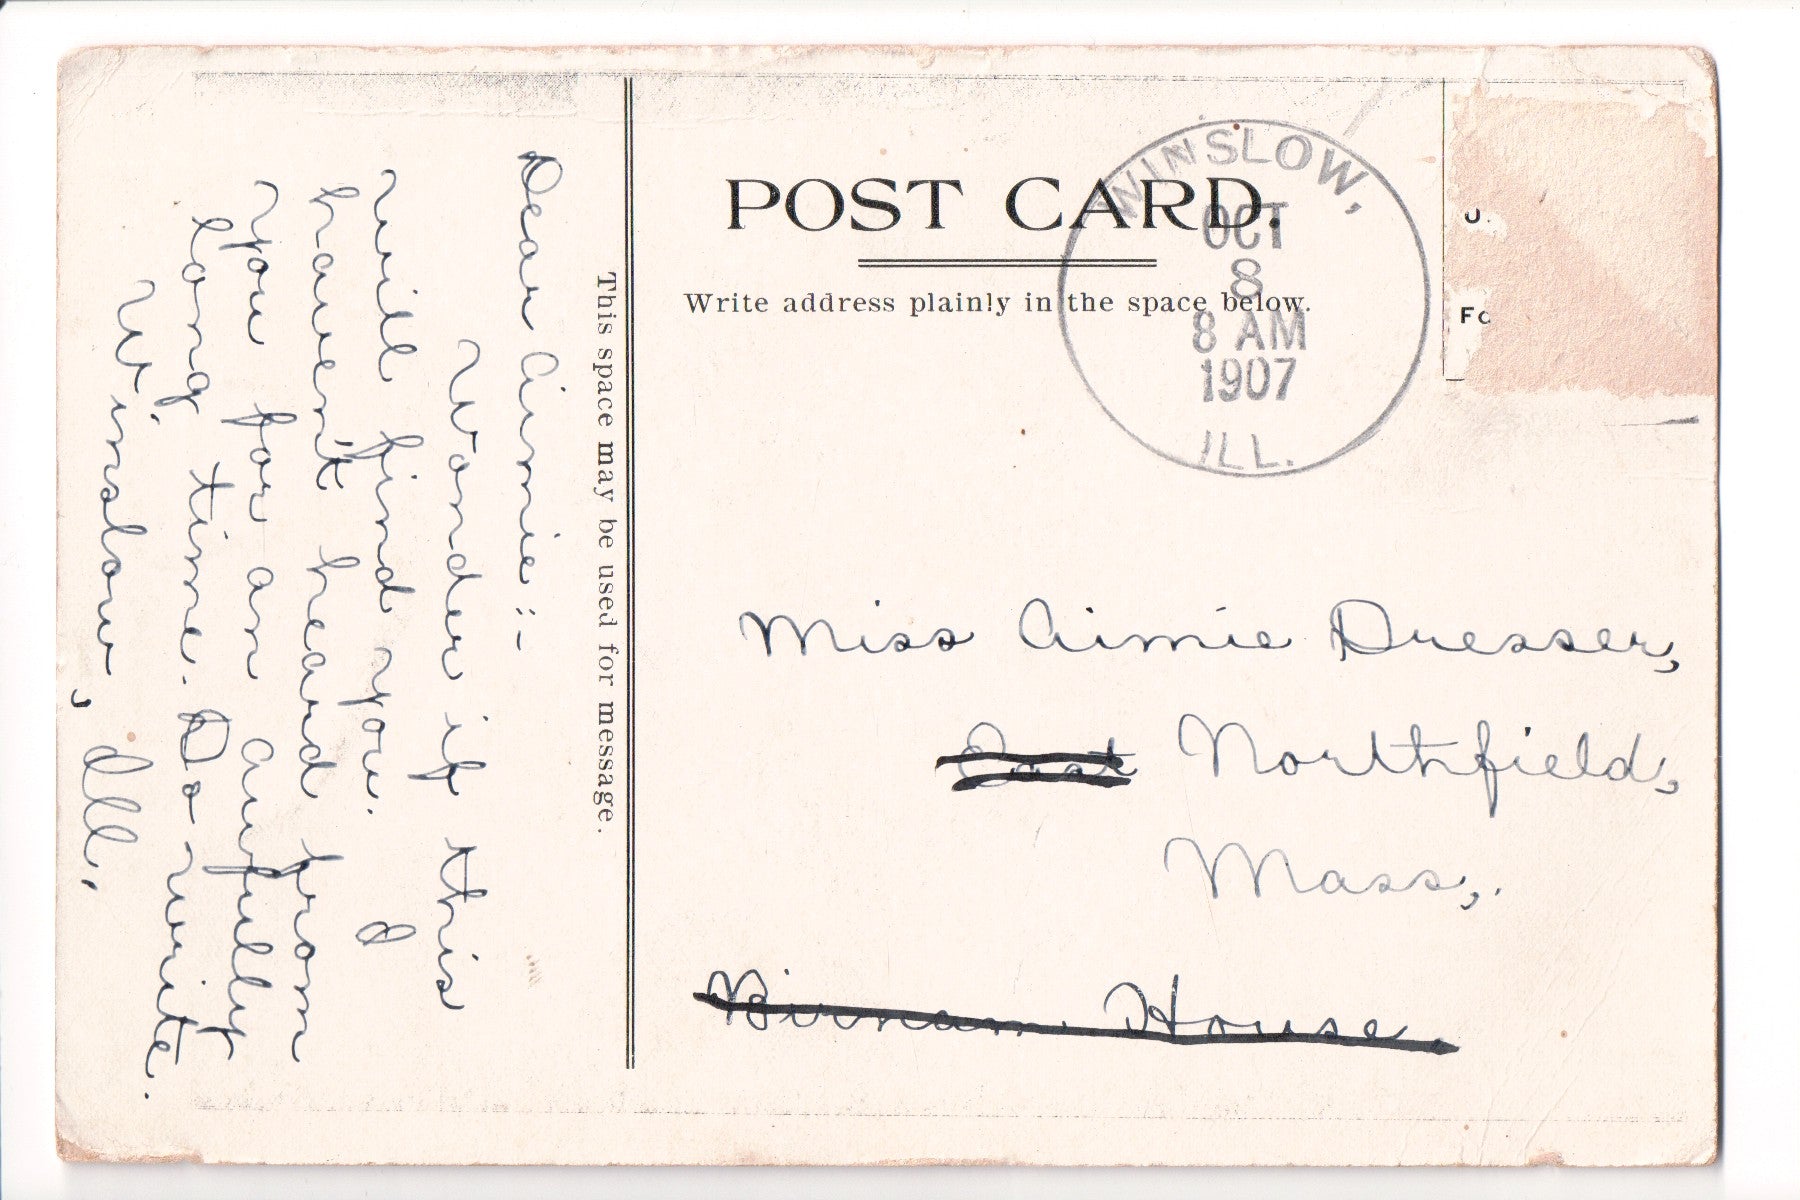 POST CARD.
Write address plainly in the space below.
This space may be used for message.
WINSLOW,
OCT
8
8 AM
1907
ILL.
U.
Fo
Dear Aimie:-
Wonder if this
will find you. I
haven't heard from
you for an awfully
long time. Do write.
Winslow, Ill.
Miss Aimie Dresser,
East Northfield,
Mass,.
Birnam House.